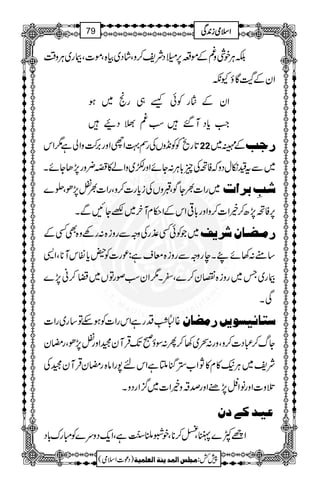 79 اسلامی زندگی
بلکہ ہر خوشی وغم کے موقعہ پر میلاد شریف کرو، شادی بیاہ، موت، بیماری ہر وقت
ان کے گیت گاؤ کیونکہ
ان کے نثار کوئی کیسے ہی رنج میں ہو
جب یاد آ گئے ہیں سب غم بھلا دئیے ہیں
رجب کے مہینہ میں 22 تاریخ کو کونڈوں کی رسم بہت اچھی اور برکت والی ہے مگر اس
میں سے یہ قید نکال دو کہ فاتحہ کی چیز باہر نہ جائے اور لکڑی والے کا قصہ ضرور پڑھا جائے۔
شبِ برات میں رات بھر جاگو، قبروں کی زیارت کرو، رات بھر نفل پڑھو، حلوے
پر فاتحہ پڑھ کر خیرات کرو اور باقی اس کے احکام آخر میں لکھے جائیں گے۔
رمضان شریف میں جو کوئی کسی وجہ سے روزہ نہ رکھے وہ بھی کسی کے
سامنے نہ کھائے پئے۔ چار وجہ سے روزہ معاف ہے: عورت کو حیض یا نفاس آنا، ایسی
بیماری جس میں روزہ نقصان کرے، سفر۔ مگر ان سب صورتوں میں قضا کرنی پڑے
گی۔
ستائیسویں رمضان غالباً شب قدر ہے اس رات کو ہو سکے تو ساری رات
جاگ کر عبادت کرو، ورنہ سحری کھا کر پھر نہ سوؤ صبح تک قرآن مجید اور نفل پڑھو، رمضان
شریف میں ہر نیک کام کا ثواب ستر گنا ملتا ہے اس لئے پورا ماہ رمضان قرآن مجید کی
تلاوت اور نوافل پڑھنے اور صدقہ وخیرات میں گزار دو۔
عید کے دن
اچھے کپڑے پہننا، غسل کرنا، خوشبو ملنا سنت ہے، ایک دوسرے کو مبارک باد
پیش کش: مجلس المدینۃ العلمیۃ (دعوت اسلامی)